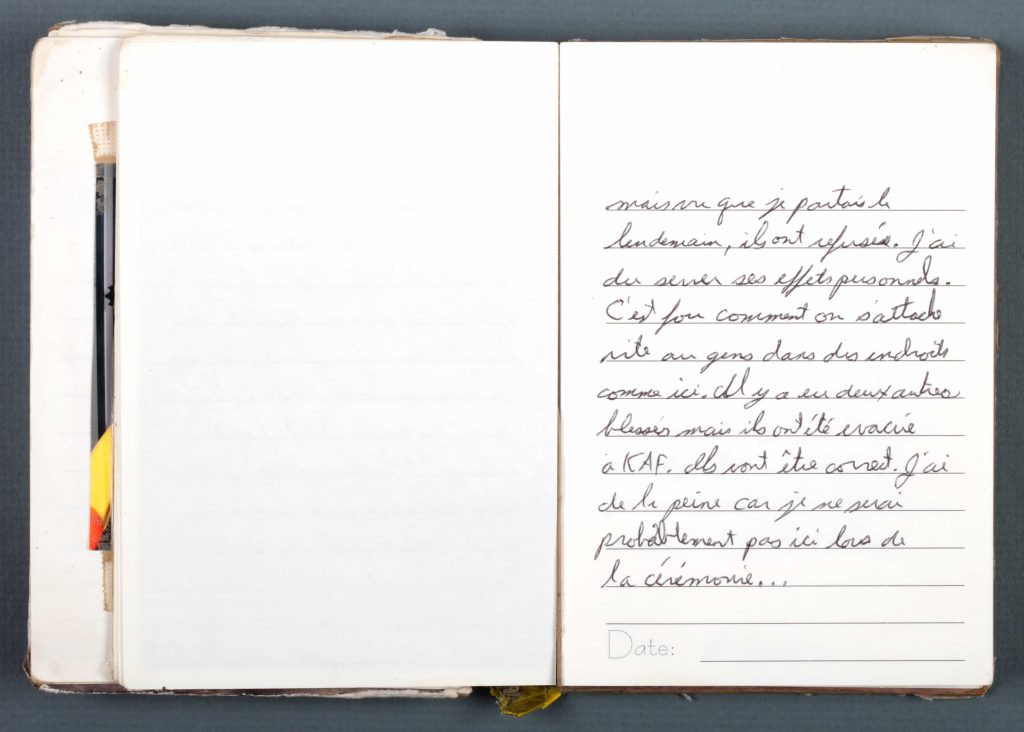 mais vu que je partais le
lendemain, ils ont refusés. J'ai
du serrer ses effets personnels.
C'est fou comment on s'attache
vite au gens dans des endroits
comme ici. Il y a eu deux autres
blessés mais ils ont été évacué
a KAF. Ils vont être correct. J'ai
de la peine car je ne serai
probablement pas ici lors de
la cérémonie...
Date: